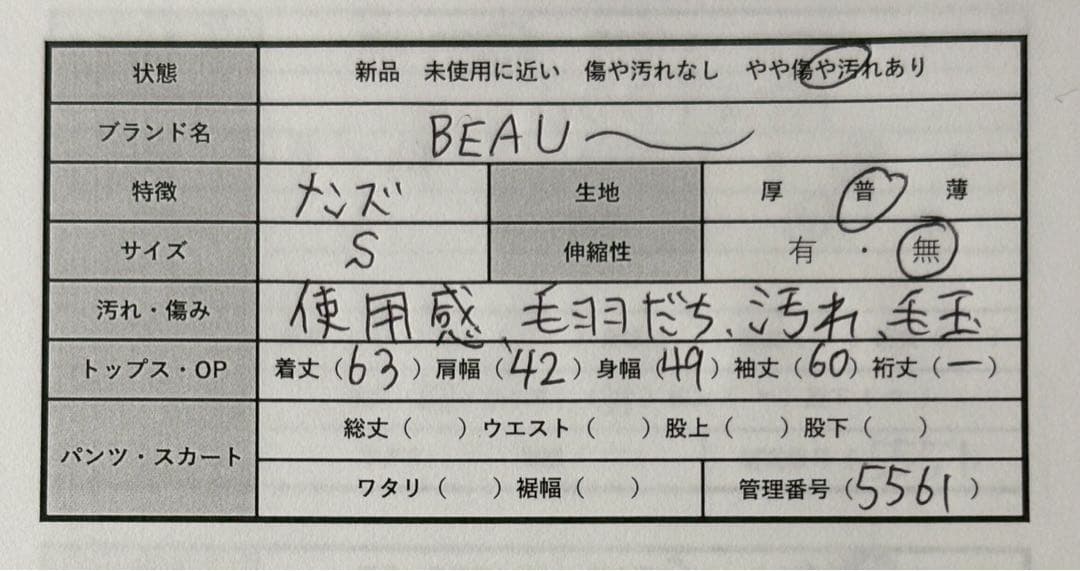 状態 新品 未使用に近い 傷や汚れなし やや傷や汚れあり
ブランド名 BEAU〜
特徴 メンズ 生地 厚 普 薄
サイズ S 伸縮性 有 ・ 無
汚れ・傷み 使用感、毛羽だち、汚れ、毛玉
トップス・OP 着丈（63）肩幅（42）身幅（49）袖丈（60）裄丈（ー）
パンツ・スカート 総丈（ ）ウエスト（ ）股上（ ）股下（ ）
ワタリ（ ）裾幅（ ） 管理番号（5561）